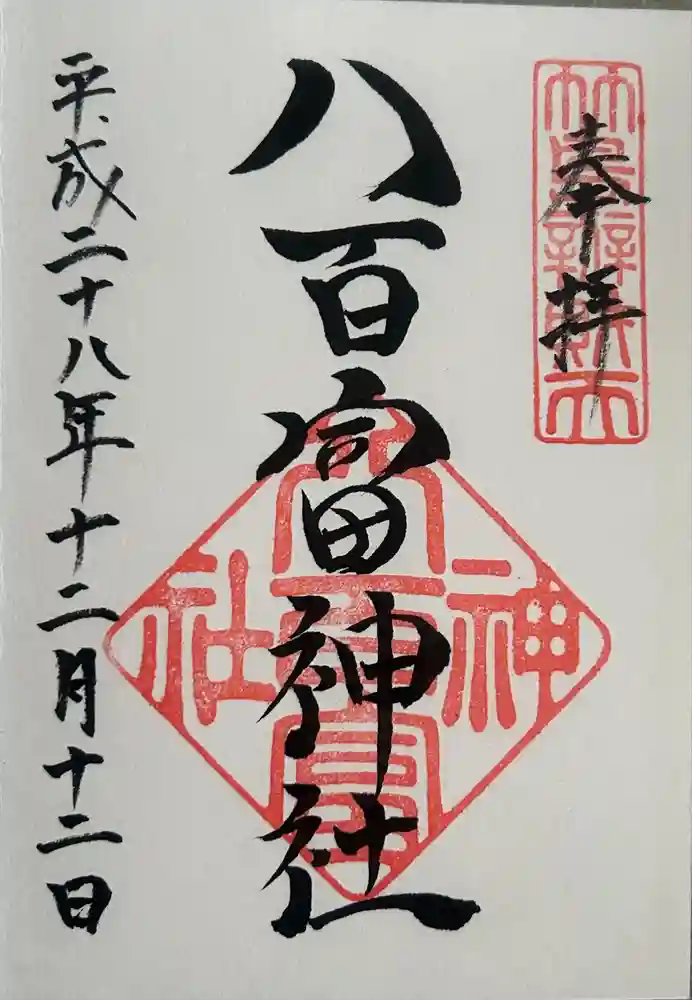 奉拝
八百富神社
八百富神社
平成二十八年十二月十二日